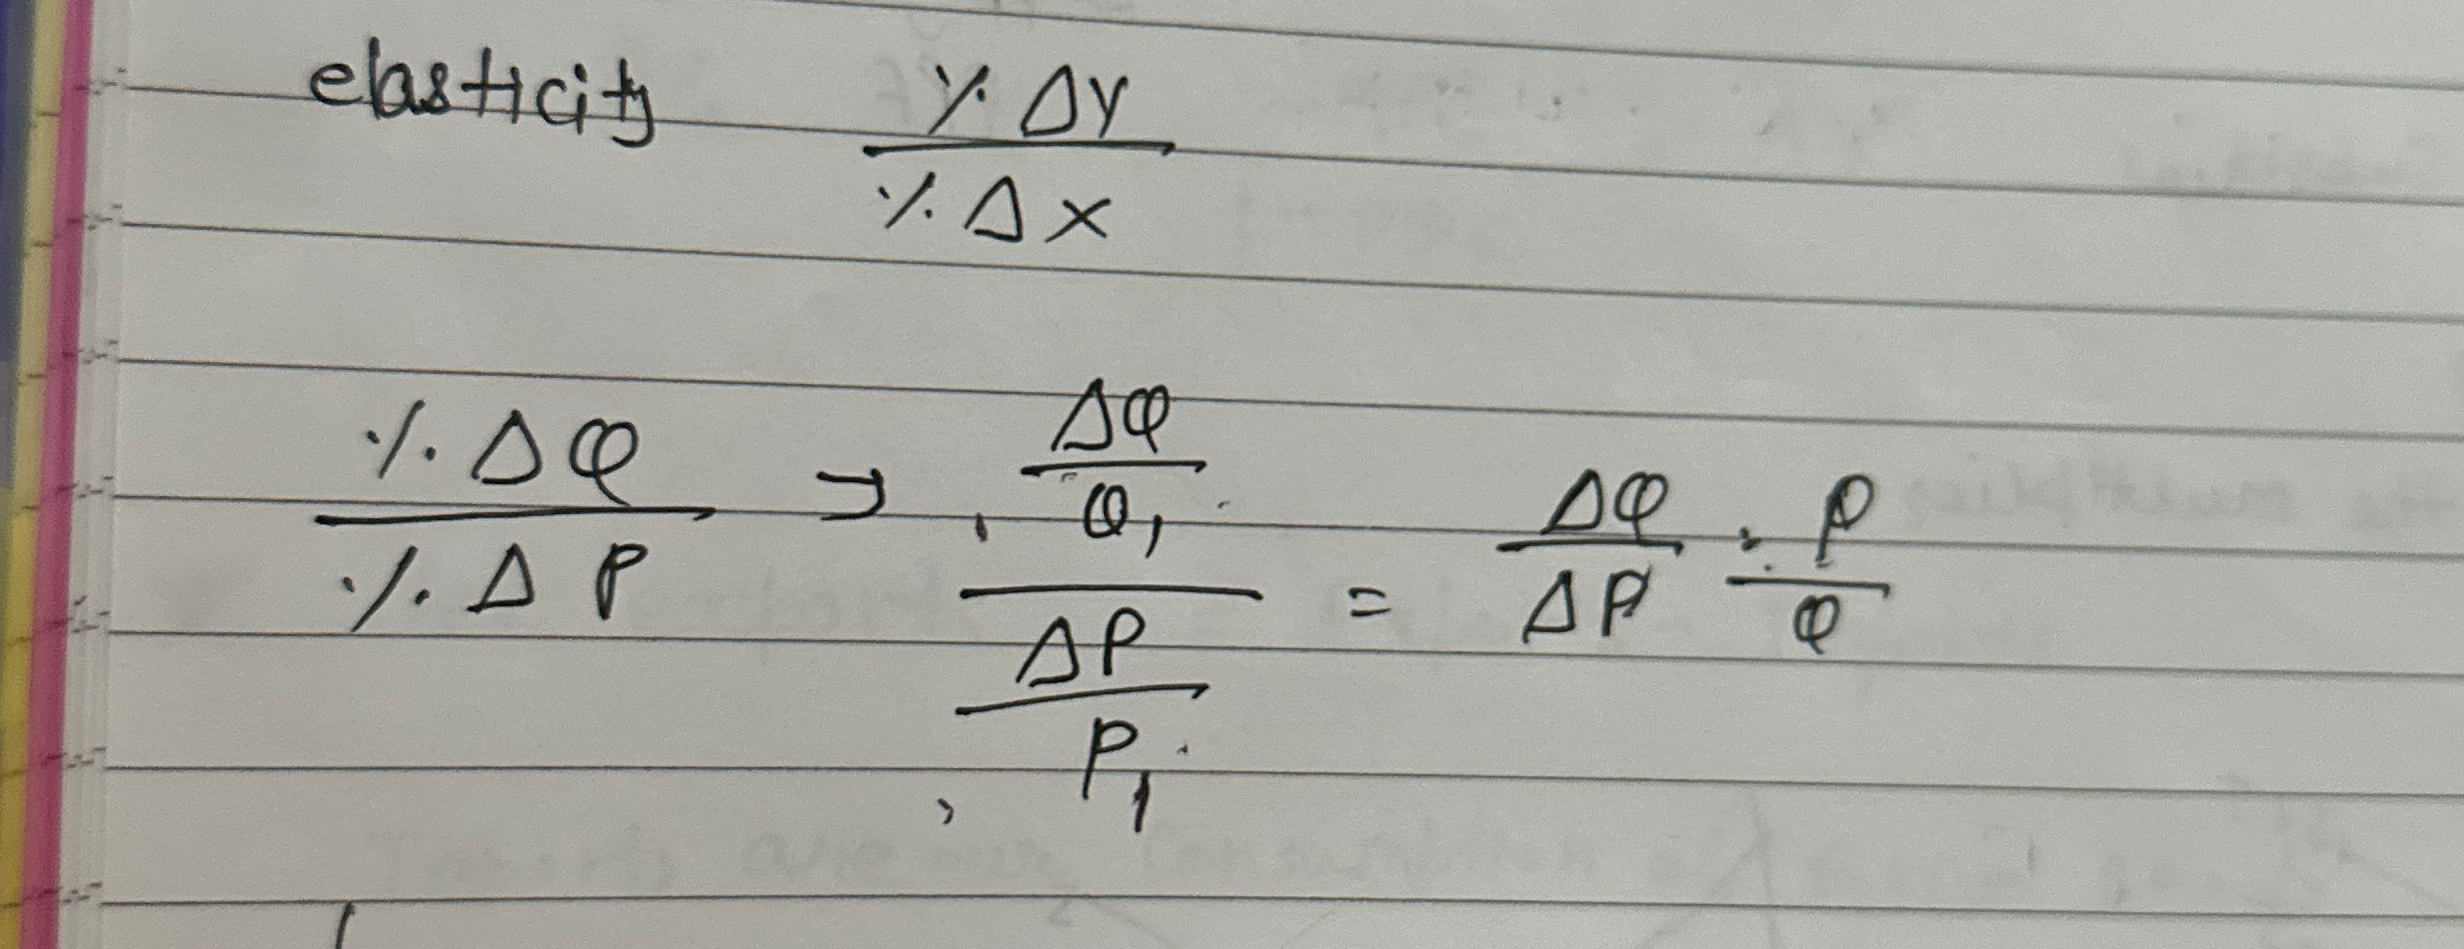 elasticity % ΔY / % ΔX
% ΔQ / % ΔP → (ΔQ / Q₁) / (ΔP / P₁) = ΔQ / ΔP · P / Q